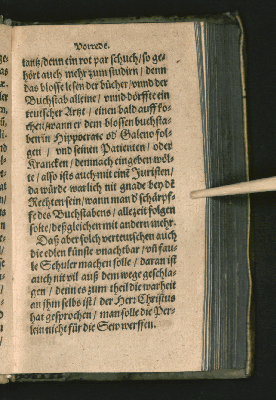 Vorrede.
tantz / denn ein rot par schuch / so ge-
hört auch mehr zum studirn / denn
das blosse lesen der bücher / vnnd der
Buchstab alleine / vnnd dörffte ein
teutscher Artzt / einen bald auff ko-
chen / wann er dem blossen buchsta-
ben in Hippocrate oď Galeno fol-
gen / vnd seinen Patienten / oder
Krancken / demnach eingeben wöl-
te / also ists auch mit den̄ Juristen /
da würde warlich nit gnade bey dē
Rechten sein / wann man ď schärpf-
fe des Buchstabens / allezeit folgen
solte / deßgleichen mit andern mehr.
Daß aber solch verteutschen auch
die edlen künste vnachtbar / vn̄ fau-
le Schuler machen solle / daran ist
auch nit vil auß dem wege geschla-
gen / denn es zum theil die warheit
an ihm selbs ist / der Herr Christus
hat gesprochen / man solle die Per-
lein nicht für die Sew werffen.